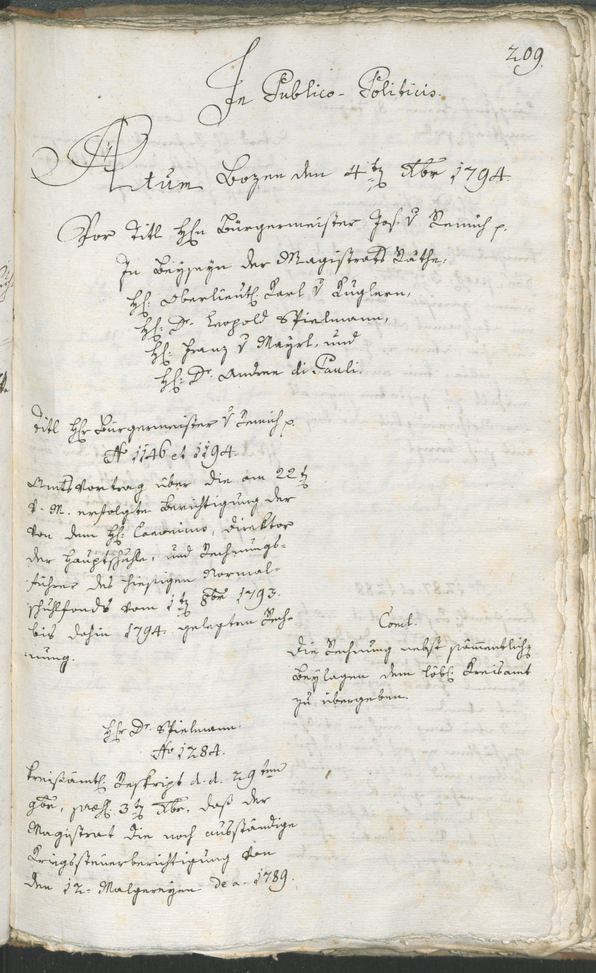 209.
In Publico-Politicis.
Actum Bozen den 4ten Xber 1794.
Vor Titl Hhn Bürgermeister Jos. v Remich p.
In Beyseyn der Magistrats Räthe,
Hh: Oberlieuth Karl v Kuglern,
Hh: Dr. Leopold Spielmann,
Hh: Franz v Mayrl, und
Hh: Dr. Andree di Pauli.
Titl Hhr Bürgermeister v Remich p.
No 1146 et 1194.
Amtsvortrag über die am 22ten
v. M. erfolgte Berichtigung der
von dem Hh: Canonicus, Direktor
der Hauptschuhle, und Rechnungs-
führer des hiesigen Normal-
schuhlfonds vom 1ten 8ber 1793.
bis dahin 1794. gelegten Rech-
nung.
Concl.
Die Rechnung nebst sämmentlichen
Beylagen dem löbl: Kreisamt
zu übergeben.
Hhr Dr. Spielmann.
No 1284.
Kreisämtl: Reskript d. d. 29ten
9ber, præs: 3ten Xber, daß der
Magistrat die noch ausständige
Kriegssteuerberichtigung von
den 12. Malgreyen de a. 1789.